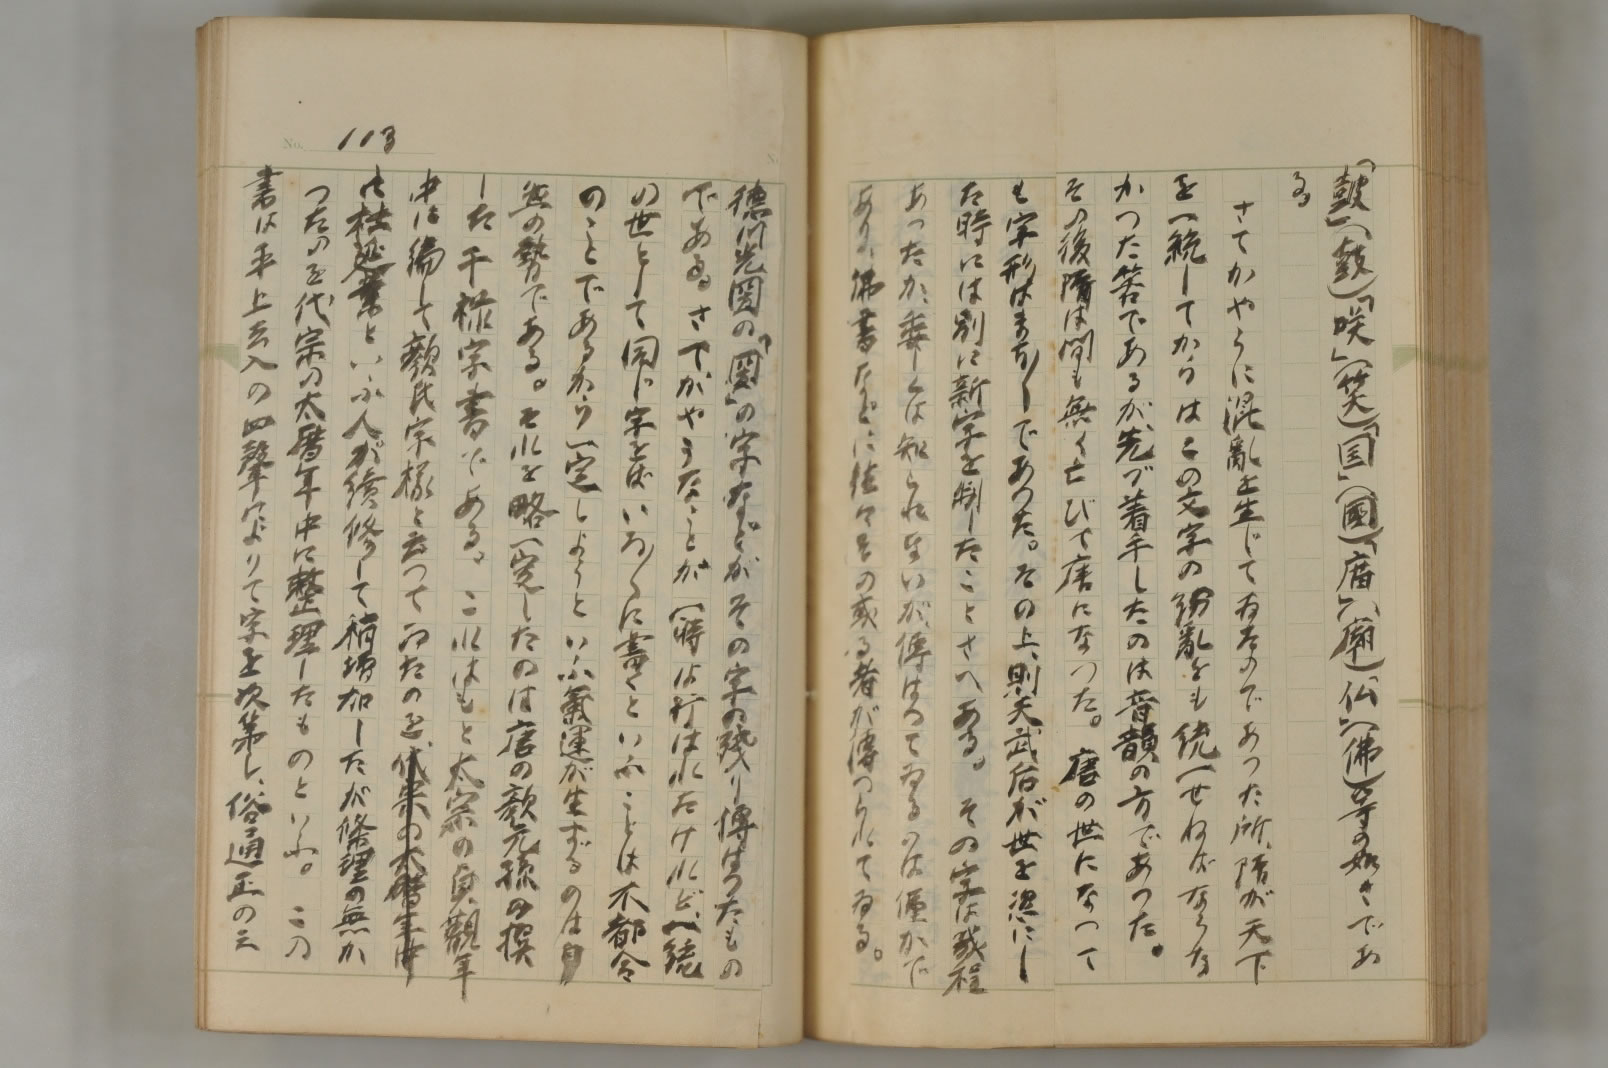 「皷」(鼓)「咲」(笑)「国」(國)「庿」(廟)「仏」(佛)等の如きであ
る。
さてかやうに混亂を生じてゐたのであつた所、隋が天下
を一統してからはこの文字の紛亂をも統一せねばならな
かつた筈であるが、先づ着手したのは音韻の方であつた。
その後隋は間も無く亡びて唐になつた。唐の世になつて
も字形はまだ〱であつた。その上、則天武后が世を恣にし
た時には別に新字を制したことさへある。その字は幾程
あつたか、委しくは知られないが、傳はつてゐるのは僅かで
あり、佛書などに往々その或る者が傳つられてゐる。
德川光圀の「圀」の字などがその字の残り傳はつたもの
である。さてがやうなことが一時は行はれたけれど、一統
の世として同じ字をばいろ〱に書くといふことは不都合
のことであるから一定しようといふ氣運が生ずるのは自
然の勢である。それを略一定したのは唐の顏元孫の撰
した干祿字書である。これはもと太宗の貞觀年
中に編して顏氏字樣と云つてゐたのを代宗の大暦年中
に杜延業といふ人が續修して稍増加したが條理の無か
つたのを代宗の大暦年中に整理したものといふ。この
書は平上去入の四聲によりて字を次第し、俗通正の三
No. 113